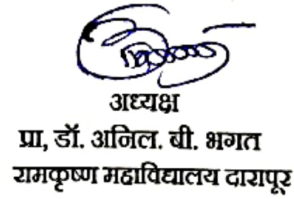 अध्यक्ष
प्रा, डॉ. अनिल. बी. भगत
रामकृष्ण महाविद्यालय दारापूर